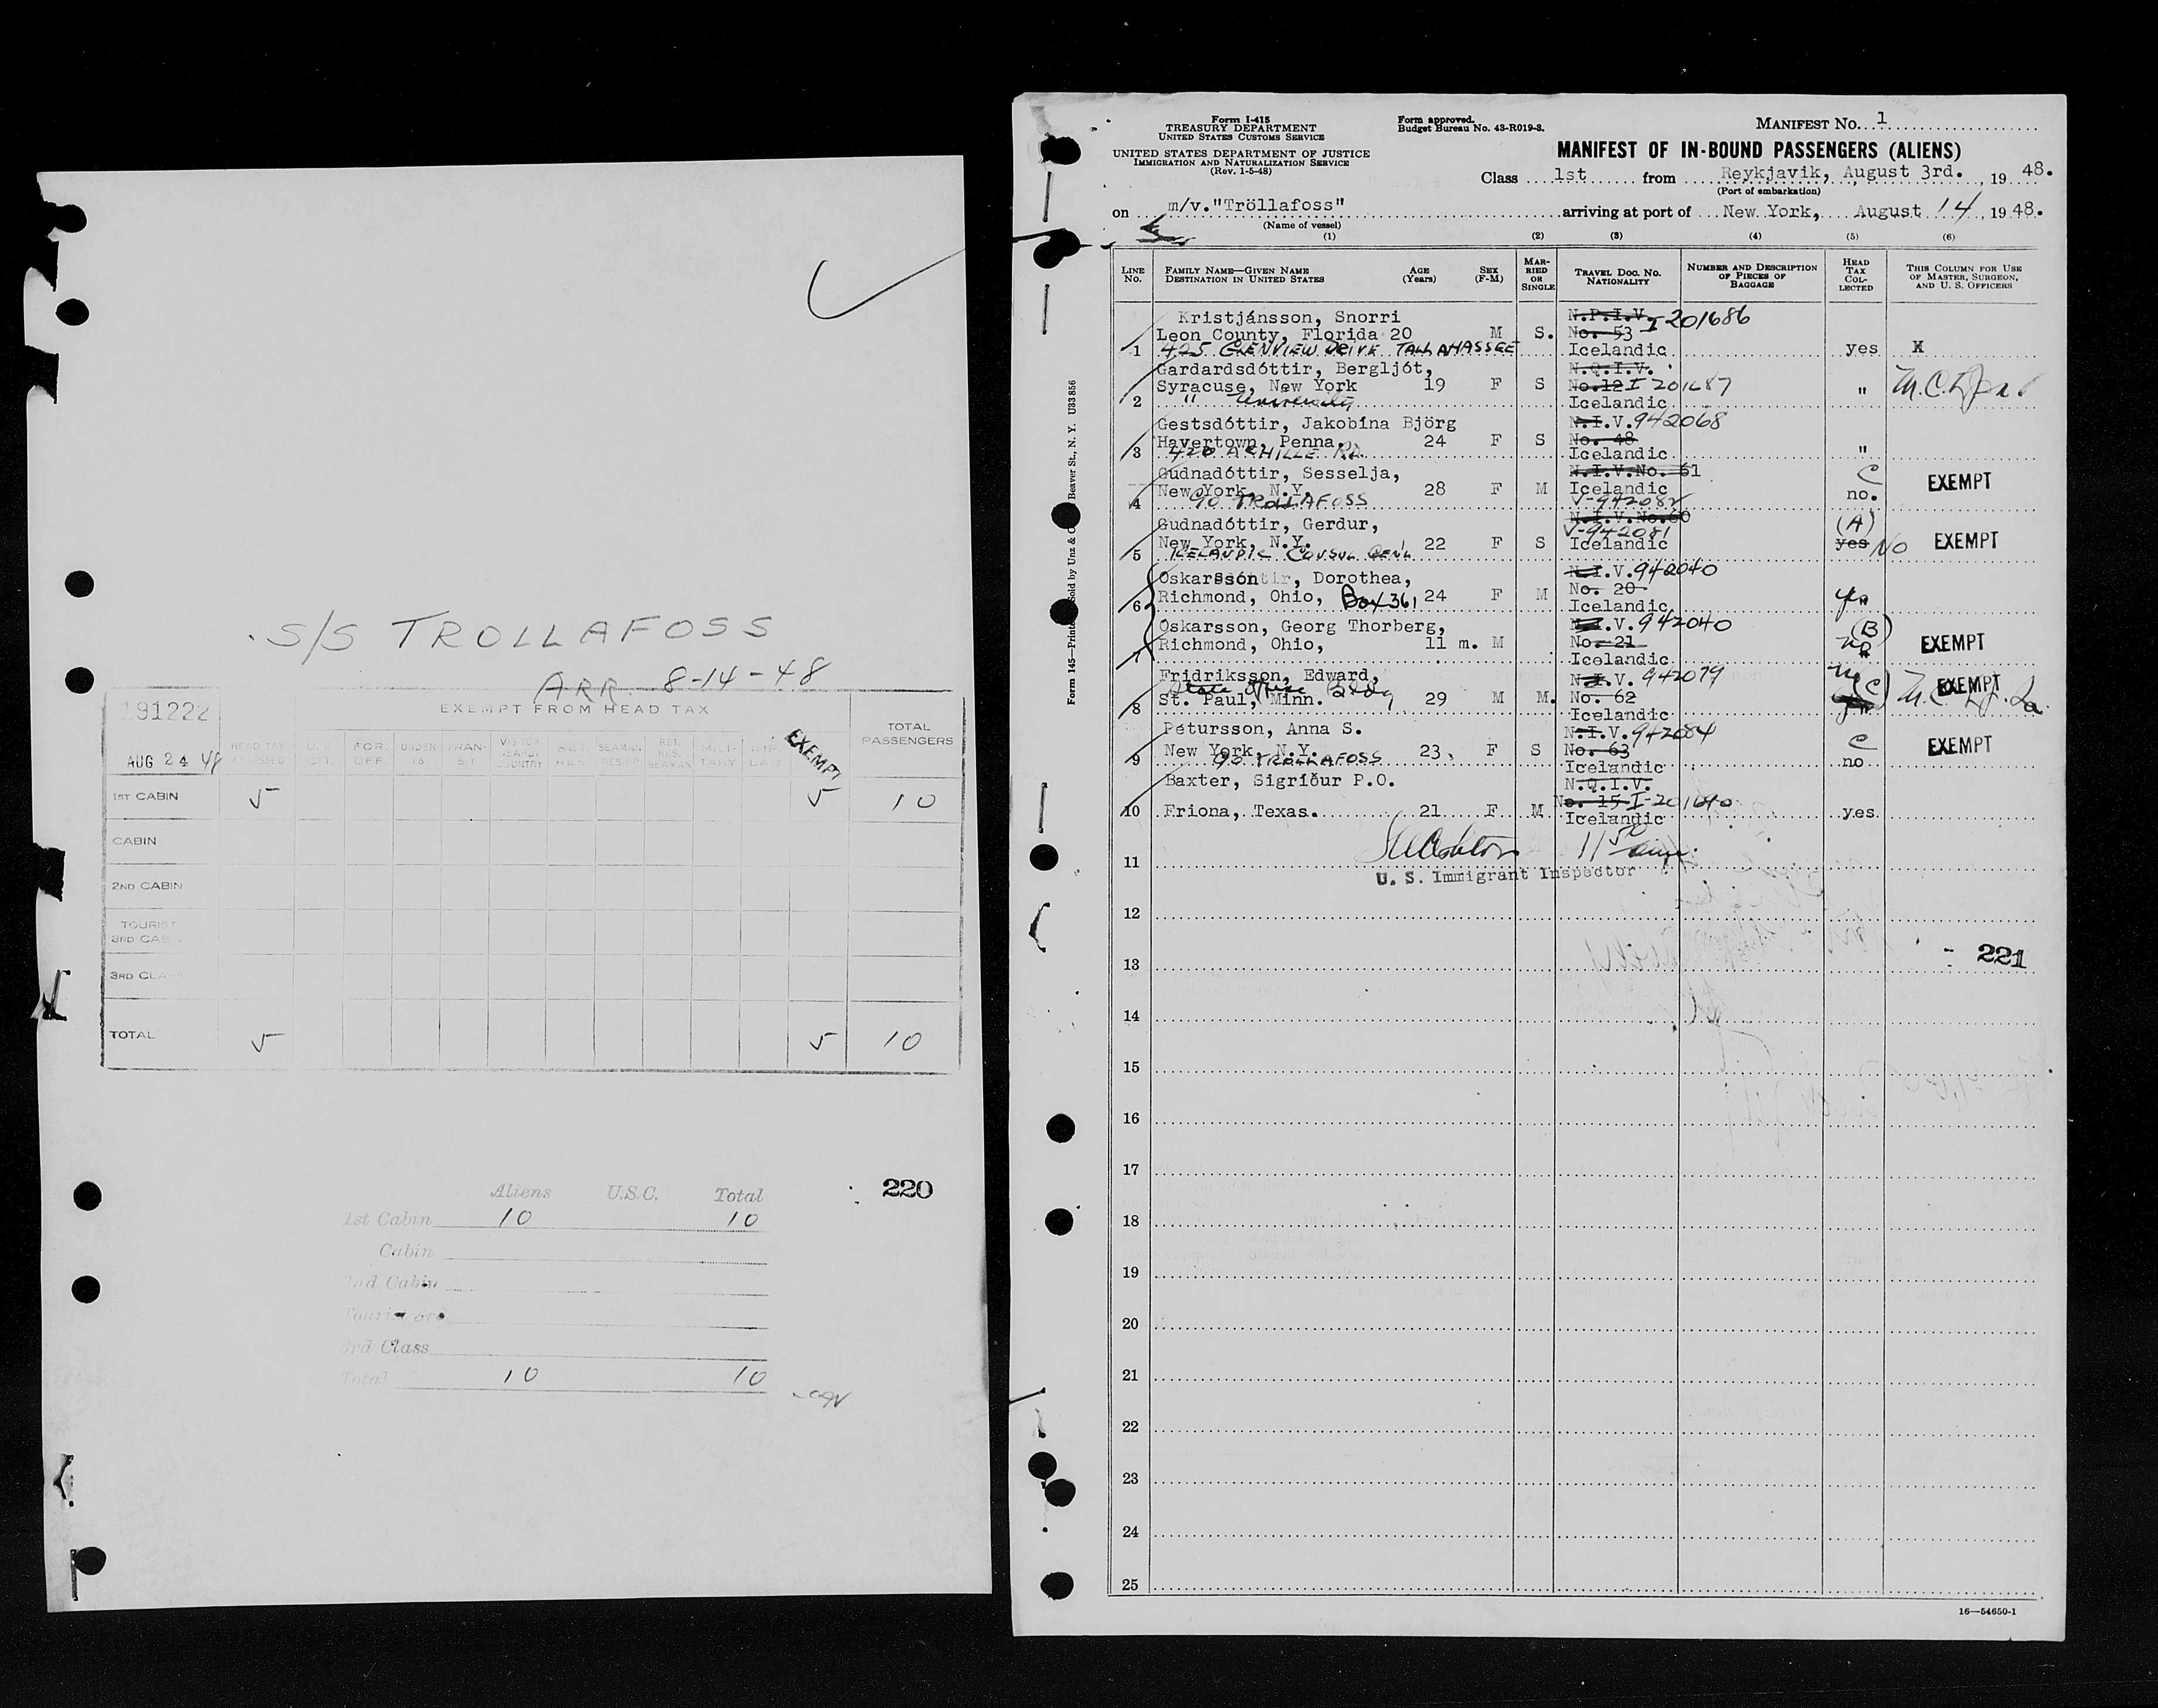 S/S TROLLAFOSS
ARR 8-14-48
191222
EXEMPT FROM HEAD TAX
TOTAL PASSENGERS
AUG 24 48
HEAD TAX ASSESSED
U.S. CIT.
FOR. OFF.
UNDER 16
TRAN- SIT
VISITOR 1 YEAR COUNTRY
RET. RES.
SEAMAN
RET. RES. SEAMAN
MILI- TARY
EXEMPT
1ST CABIN 5 5 10
CABIN
2ND CABIN
TOURIST 3RD CABIN
3RD CLASS
TOTAL 5 5 10
220
Aliens U.S.C. Total
1st Cabin 10 10
Cabin
2nd Cabin
Tourist 3rd
3rd Class
Total 10 10
Form I-415
TREASURY DEPARTMENT
UNITED STATES CUSTOMS SERVICE
UNITED STATES DEPARTMENT OF JUSTICE
IMMIGRATION AND NATURALIZATION SERVICE
(Rev. 1-5-48)
Form approved.
Budget Bureau No. 43-R019-3.
MANIFEST NO. 1
MANIFEST OF IN-BOUND PASSENGERS (ALIENS)
Class 1st from Reykjavik, August 3rd. , 19 48.
(Port of embarkation)
on m/v."Tröllafoss" arriving at port of New York, August 14, 1948.
(Name of vessel)
(1) (2) (3) (4) (5) (6)
LINE No.
FAMILY NAME—GIVEN NAME
DESTINATION IN UNITED STATES
AGE (Years)
SEX (F-M)
MARRIED OR SINGLE
TRAVEL DOC. NO. NATIONALITY
NUMBER AND DESCRIPTION OF PIECES OF BAGGAGE
HEAD TAX COLLECTED
THIS COLUMN FOR USE OF MASTER, SURGEON, AND U. S. OFFICERS
Kristjánsson, Snorri N.P.I.V. I-201686
Leon County, Florida 20 M S. No. 53
1 425 GLENVIEW DRIVE TALLAHASSEE Icelandic yes X
Gardardsdóttir, Bergljót, N.Q.I.V.
Syracuse, New York 19 F S No.12 I 201687
2 " University Icelandic "
Gestsdóttir, Jakobína Björg N.I.V. 942068
Havertown, Penna. 24 F S No. 48
3 Icelandic "
Gudnadóttir, Sesselja, N.I.V.No. 61 C EXEMPT
New York, N.Y. 28 F M Icelandic no.
4 c/o TROLLAFOSS V-942082
Gudnadóttir, Gerdur, N.I.V.No.60 (A)
New York, N.Y. 22 F S V-942081 yes No EXEMPT
5 ICELANDIC CONSUL GENL Icelandic
Oskarsson, Dorothea, N.I.V. 942040
Richmond, Ohio, Box 361 24 F M No. 20
6 Icelandic
Oskarsson, Georg Thorberg, N.I.V. 942040 (B)
Richmond, Ohio, 11 m. M No. 21 EXEMPT
7 Icelandic
Fridriksson, Edward, N.I.V. 942079
State Office Bldg
8 St. Paul, Minn. 29 M M. No. 62 (C) EXEMPT
Icelandic
Pétursson, Anna S. N.I.V. 942084 C
New York, N.Y. 23 F S No. 63 EXEMPT
9 c/o TROLLAFOSS Icelandic no
Baxter, Sigríður P.O. N.Q.I.V.
No. 15 I-201640
10 Friona, Texas. 21 F M Icelandic yes
11
U. S. Immigrant Inspector
12
13
221
14
15
16
17
18
19
20
21
22
23
24
25
16—54650-1